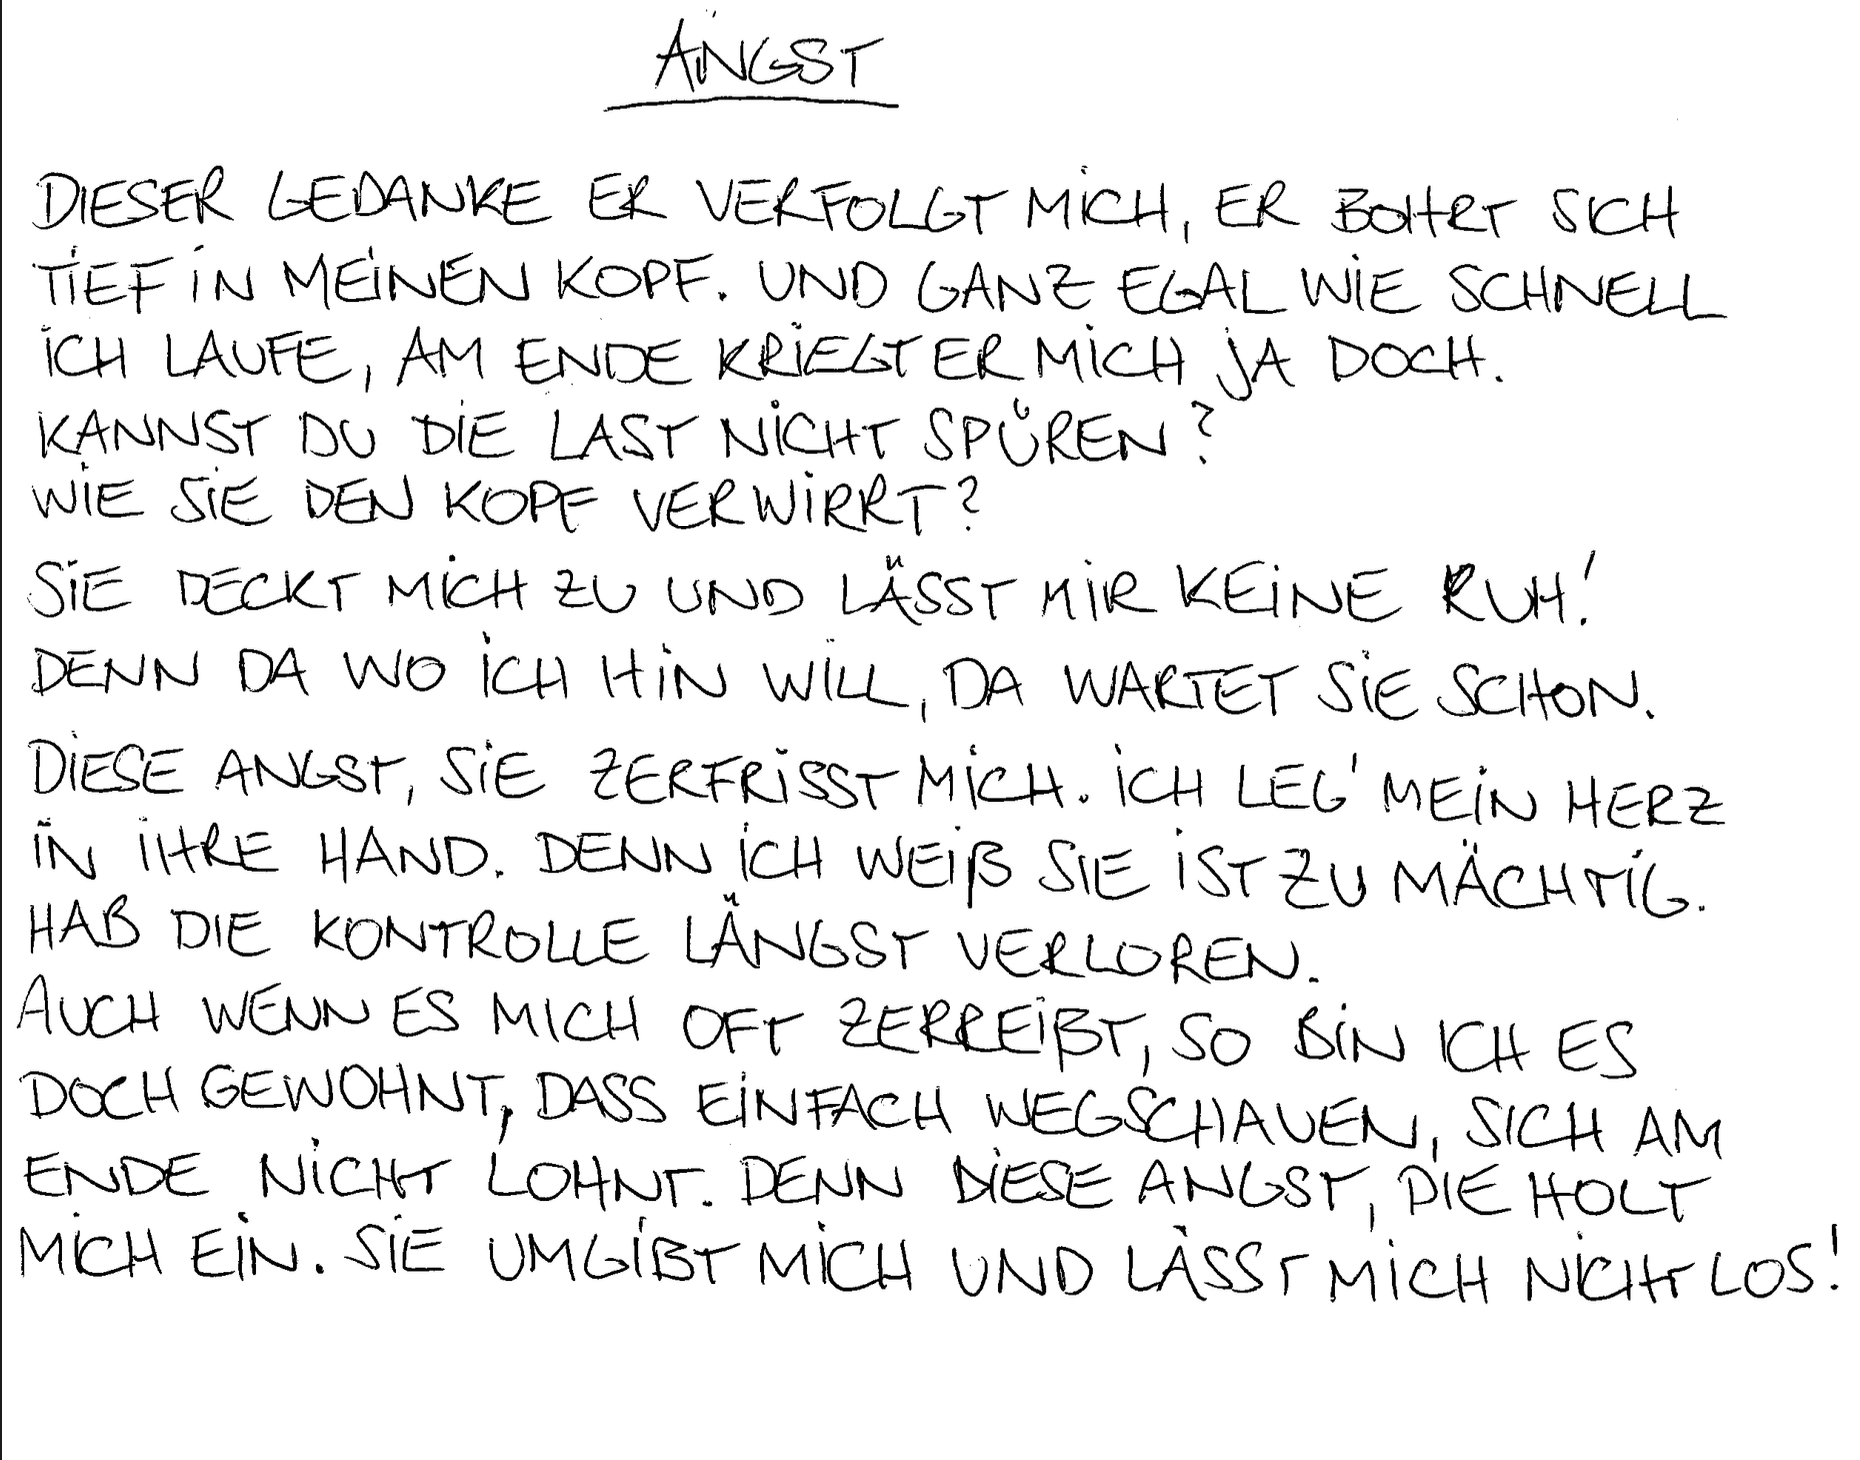 ANGST
DIESER GEDANKE ER VERFOLGT MICH, ER BOHRT SICH
TIEF IN MEINEN KOPF. UND GANZ EGAL WIE SCHNELL
ICH LAUFE, AM ENDE KRIEGT ER MICH JA DOCH.
KANNST DU DIE LAST NICHT SPÜREN?
WIE SIE DEN KOPF VERWIRRT?
SIE DECKT MICH ZU UND LÄSST MIR KEINE RUH!
DENN DA WO ICH HIN WILL, DA WARTET SIE SCHON.
DIESE ANGST, SIE ZERFRISST MICH. ICH LEG' MEIN HERZ
IN IHRE HAND. DENN ICH WEIß SIE IST ZU MÄCHTIG.
HAB DIE KONTROLLE LÄNGST VERLOREN.
AUCH WENN ES MICH OFT ZERREIßT, SO BIN ICH ES
DOCH GEWOHNT, DASS EINFACH WEGSCHAUEN, SICH AM
ENDE NICHT LOHNT. DENN DIESE ANGST, DIE HOLT
MICH EIN. SIE UMGIBT MICH UND LÄSST MICH NICHT LOS!